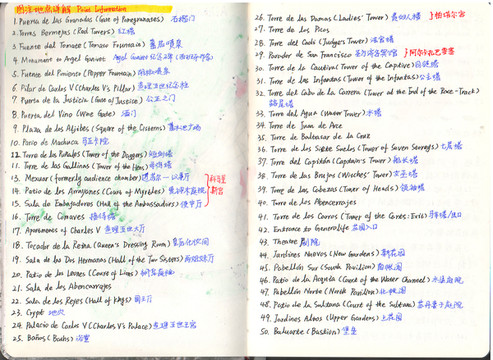 图注地点详解 Point Information
1. Puerta de las Granadas (Gate of Pomegranates) 石榴门
2. Torres Bermejas (Red Towers) 红塔
3. Fuente del Tomate (Tomato Fountain) 番茄喷泉
4. Monument to Angel Ganivet
5. Fuente del Pimiento (Pepper Fountain)
6. Pilar de Carlos V (Charles V's Pillar) 查理五世
7. Puerta de la Justicia (Gate of Justice) 公正之门
8. Puerta del Vino (Wine Gate) 酒门
9. Plaza de los Aljibes (Square of the Cisterns)
10. Patio de Machuca
11. Torre de los Puñales (Tower of the Daggers)
12. Torre de las Gallinas (Tower of the Hens)
13. Mexuar (formerly audience chamber)
14. Patio de los Arrayanes (Court of Myrtles)
15. Sala de Embajadores (Hall of the Ambassadors)
16. Torre de Comares
17. Apartments of Charles V 查理五世
18. Tocador de la Reina (Queen's Dressing Room)
19. Sala de las Dos Hermanas (Hall of the Two Sisters)
20. Patio de los Leones (Court of Lions)
21. Sala de los Abencerrajes
22. Sala de los Reyes (Hall of Kings) 国王厅
23. Crypt 地穴
24. Palacio de Carlos V (Charles V's Palace) 查理五世宫
25. Baños (Baths) 浴室
26. Torre de las Damas (Ladies' Tower)
27. Torre de los Picos
28. Torre del Cadí (Judge's Tower) 法官塔
29. Mirador de San Francisco
30. Torre de la Cautiva (Tower of the Captive)
31. Torre de las Infantas (Tower of the Infantas) 公主塔
32. Torre del Cabo de la Carrera (Tower at the End of the Race-Track)
33. Torre del Agua (Water Tower) 水塔
34. Torre de Juan de Arce
35. Torre de Baltasar de la Cruz
36. Torre de los Siete Suelos (Tower of Seven Storeys) 七层塔
37. Torre del Capitán (Captain's Tower) 船长塔
38. Torre de las Brujas (Witches' Tower) 女巫塔
39. Torre de las Cabezas (Tower of Heads)
40. Torre de los Abencerrajes
41. Torre de los Carros (Tower of the Carts: Exit)
42. Entrance to Generalife 花园入口
43. Theatre 剧院
44. Jardines Nuevos (New Gardens) 新花园
45. Pabellón Sur (South Pavilion) 南帐阁
46. Patio de la Acequia (Court of the Water Channel)
47. Pabellón Norte (North Pavilion)
48. Patio de la Sultana (Court of the Sultana)
49. Jardines Altos (Upper Gardens) 上花园
50. Baluarte (Bastion) 堡垒